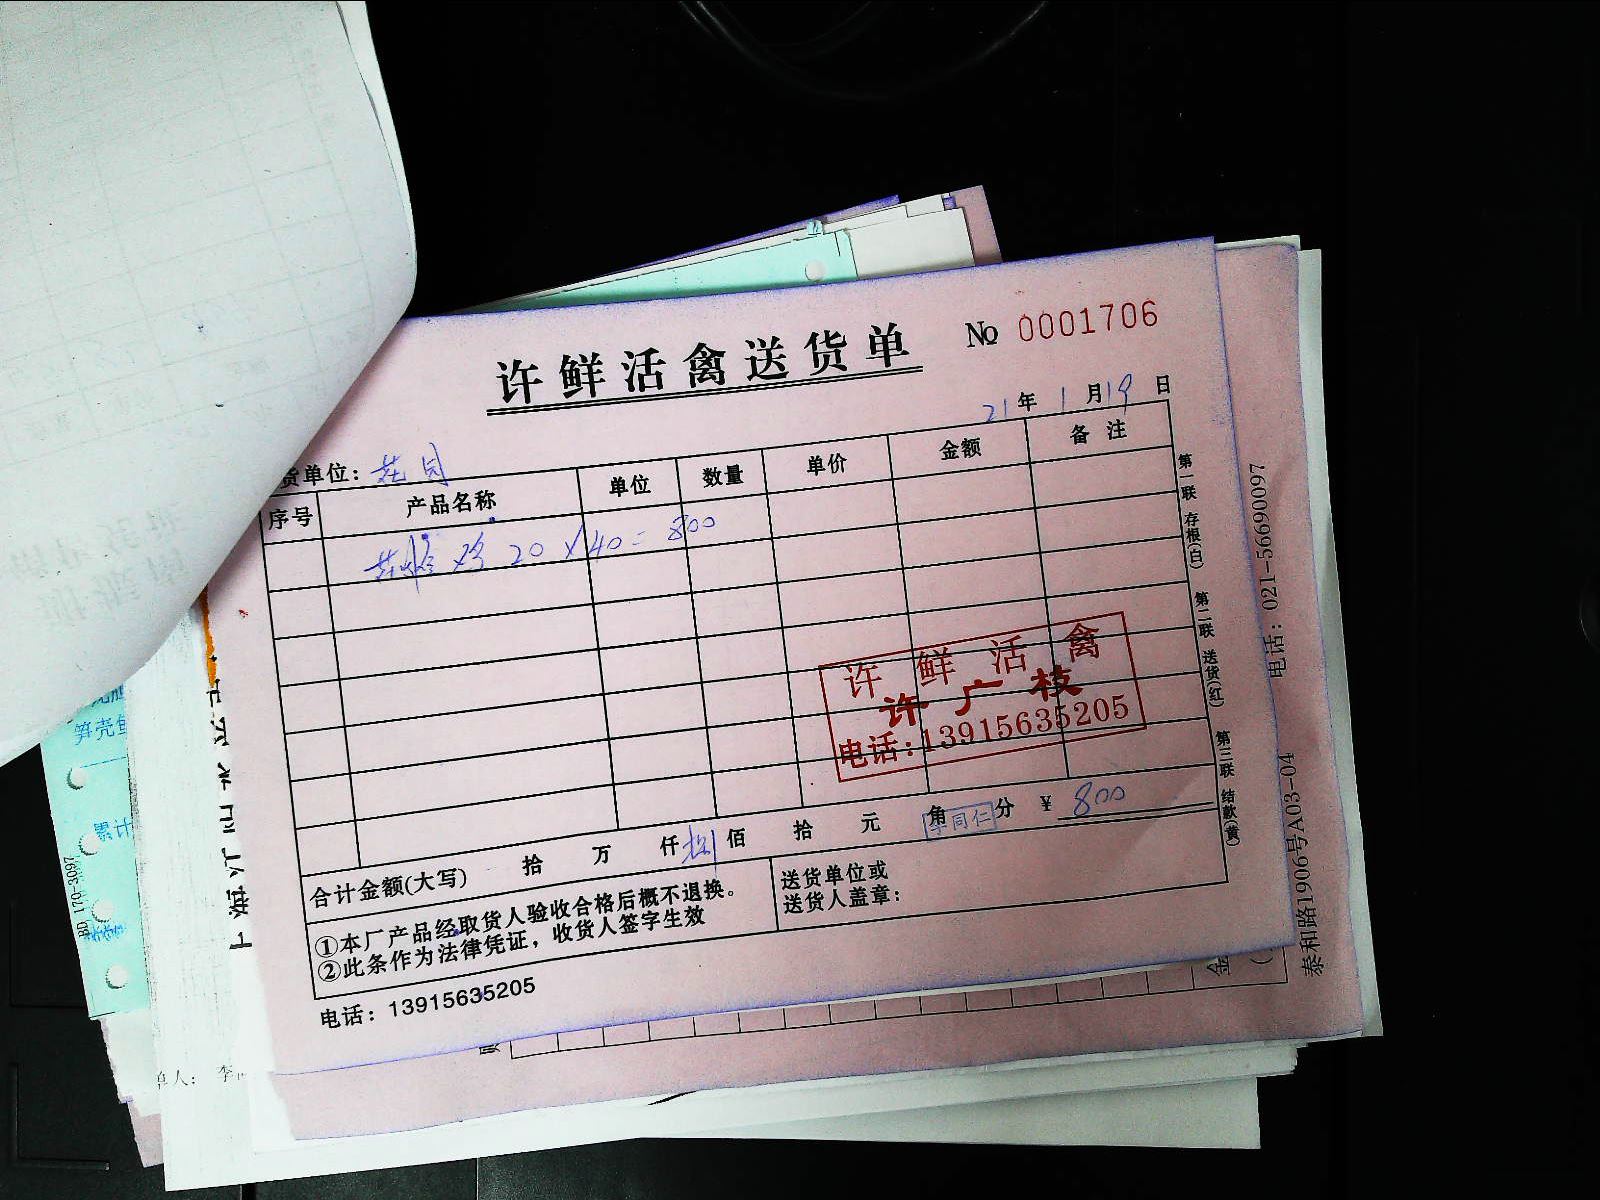 许鲜活禽送货单 № 0001706
21年1月19日
货单位：花园
序号 产品名称 单位 数量 单价 金额 备注
鸡 20×40=800
许鲜活禽
许广枝
电话：13915635205
合计金额(大写) 拾 万 仟 捌佰 拾 元 角 分 ¥ 800
李同仁
①本厂产品经取货人验收合格后概不退换。
②此条作为法律凭证，收货人签字生效
送货单位或
送货人盖章：
电话：13915635205
第一联 存根(白) 第二联 送货(红) 第三联 结款(黄)
电话：021-56690097
泰和路1906号A03-04
笋壳鱼
累计
单人：李